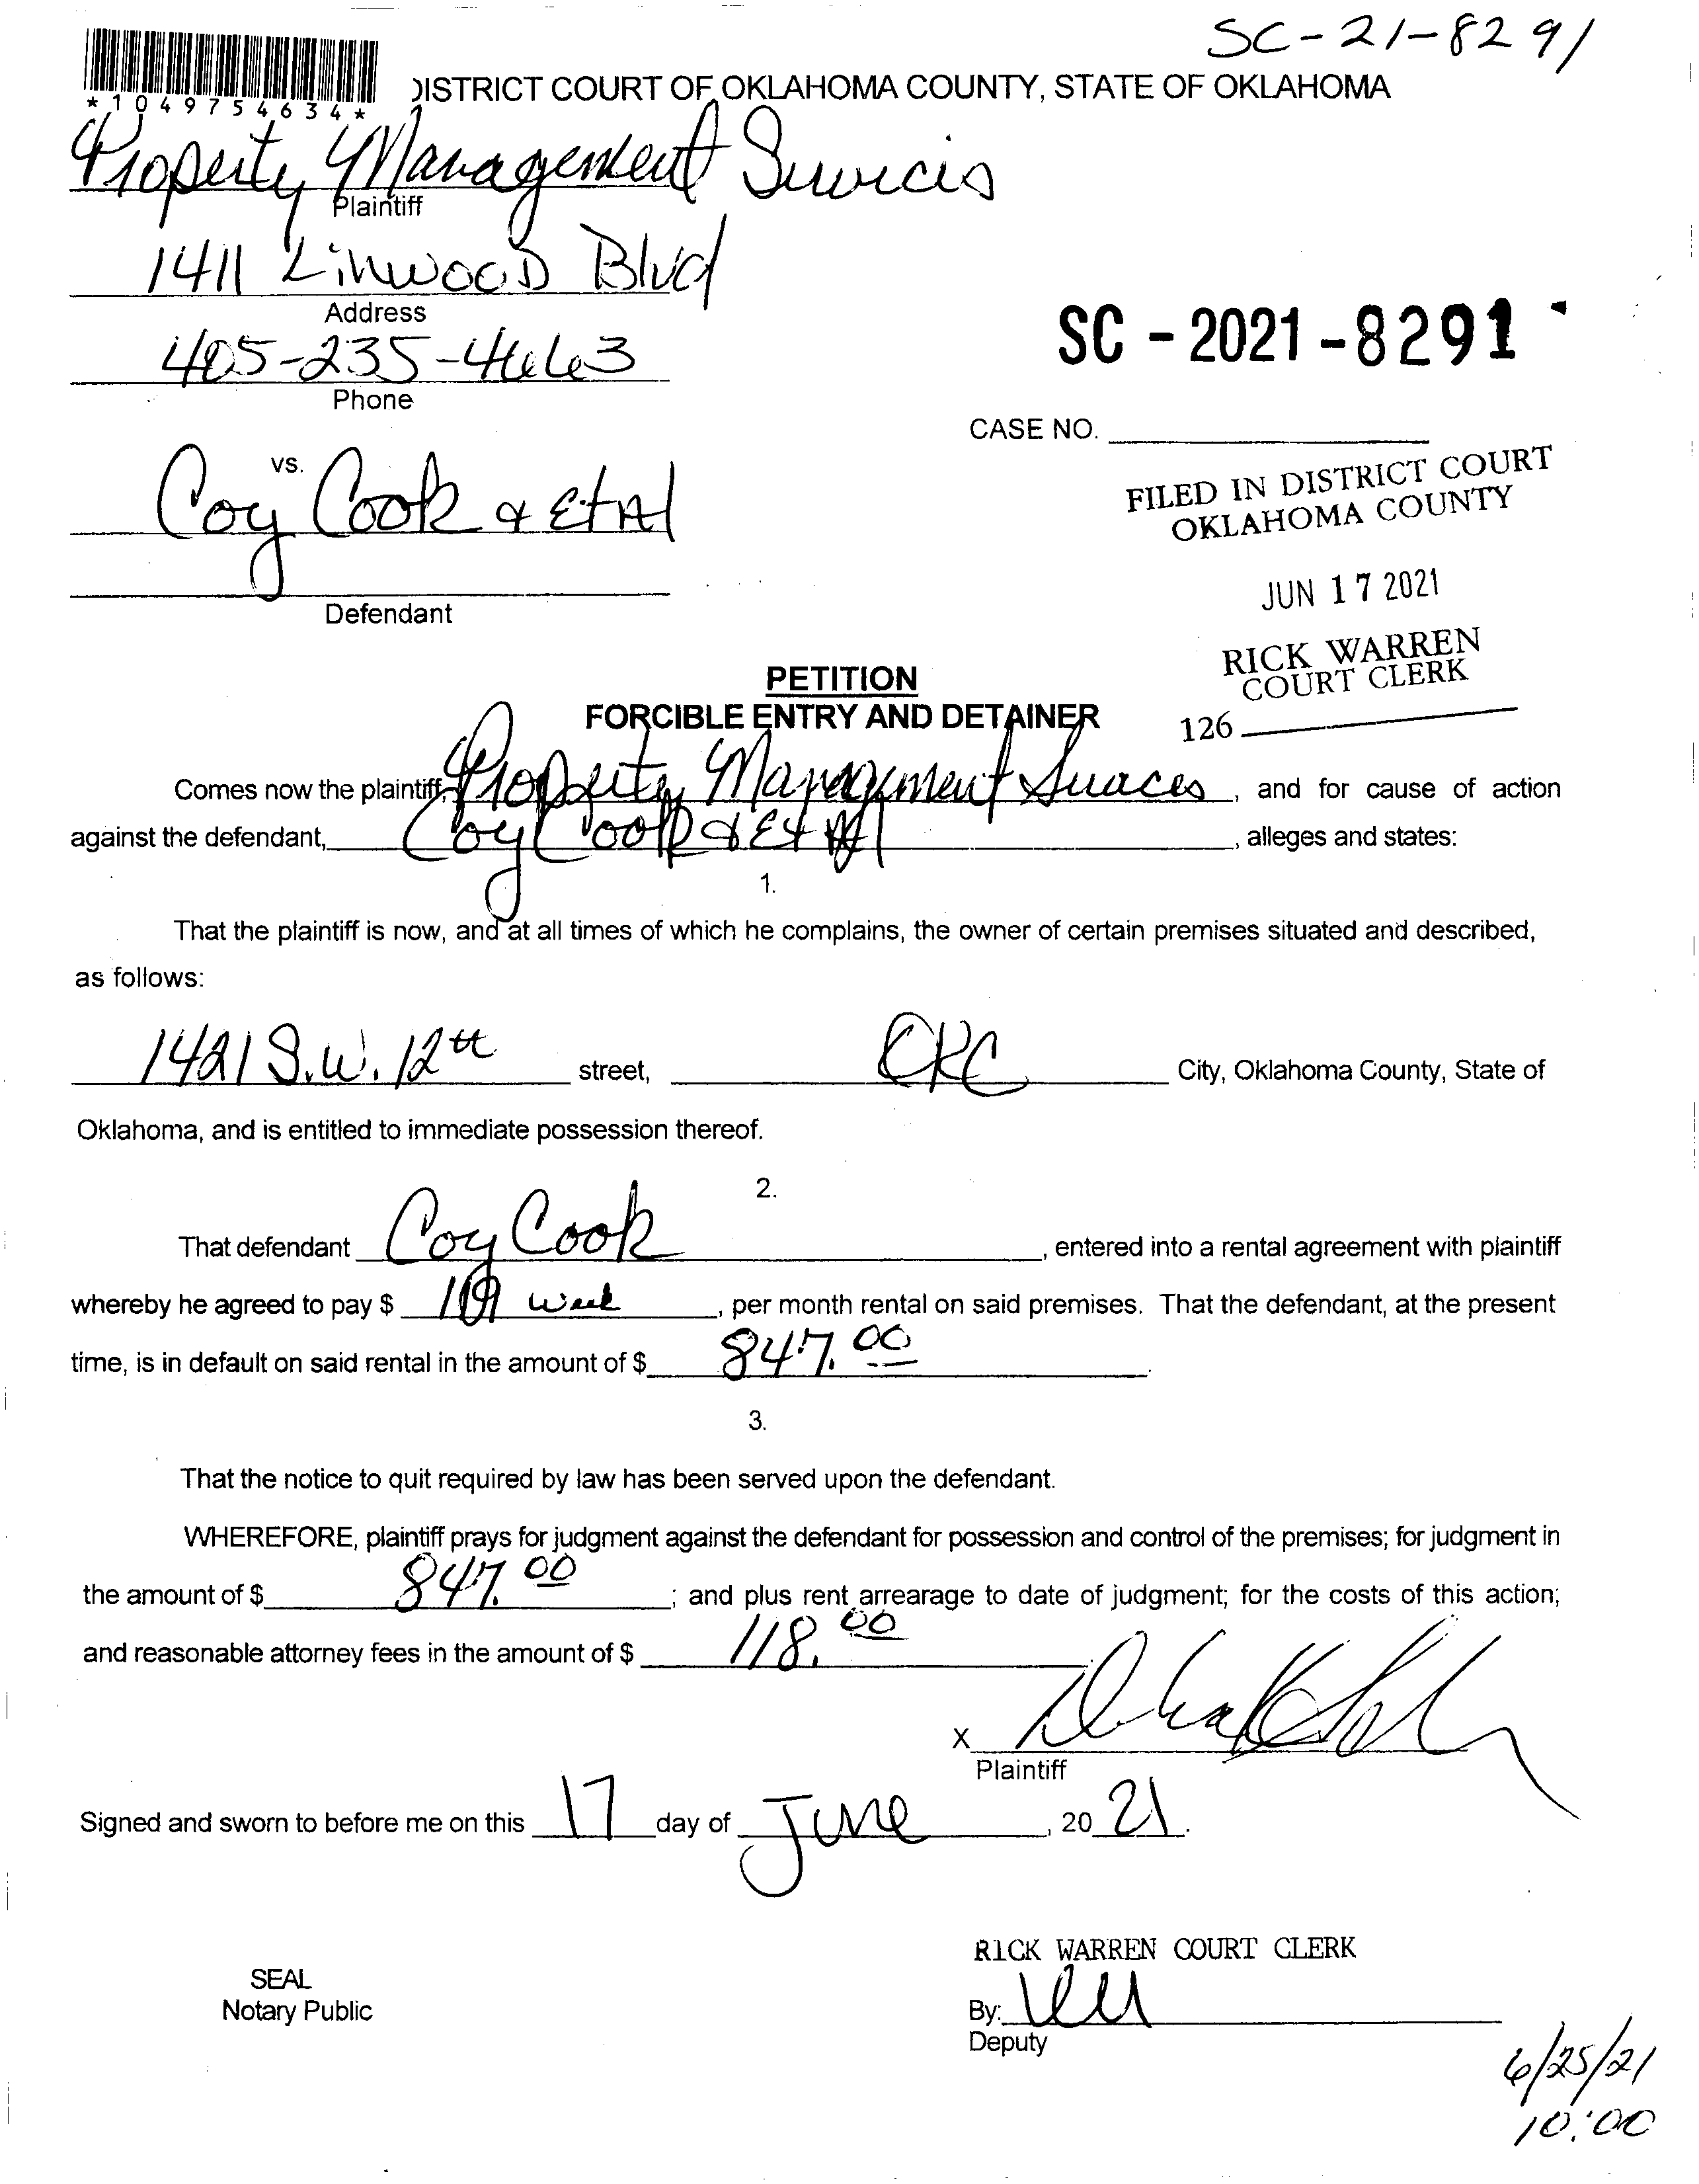 SC-21-8291
*1049754634*
DISTRICT COURT OF OKLAHOMA COUNTY, STATE OF OKLAHOMA
Property Management Services
Plaintiff
1411 Linwood Blvd
Address
405-235-4663
Phone
SC - 2021 - 8291
CASE NO.
vs.
Coy Cook & Et Al
Defendant
FILED IN DISTRICT COURT
OKLAHOMA COUNTY
JUN 17 2021
RICK WARREN
COURT CLERK
126
PETITION
FORCIBLE ENTRY AND DETAINER
Comes now the plaintiff, Property Management Services, and for cause of action
against the defendant, Coy Cook & Et Al, alleges and states:
1.
That the plaintiff is now, and at all times of which he complains, the owner of certain premises situated and described,
as follows:
1421 S.W. 12th street, OKC City, Oklahoma County, State of
Oklahoma, and is entitled to immediate possession thereof.
2.
That defendant Coy Cook, entered into a rental agreement with plaintiff
whereby he agreed to pay $ week, per month rental on said premises. That the defendant, at the present
time, is in default on said rental in the amount of $ 847.00.
3.
That the notice to quit required by law has been served upon the defendant.
WHEREFORE, plaintiff prays for judgment against the defendant for possession and control of the premises; for judgment in
the amount of $ 847.00; and plus rent arrearage to date of judgment; for the costs of this action;
and reasonable attorney fees in the amount of $ 118.00
X
Plaintiff
Signed and sworn to before me on this 17 day of June, 20 21.
RICK WARREN COURT CLERK
SEAL
Notary Public
By:
Deputy
6/25/21
10:00